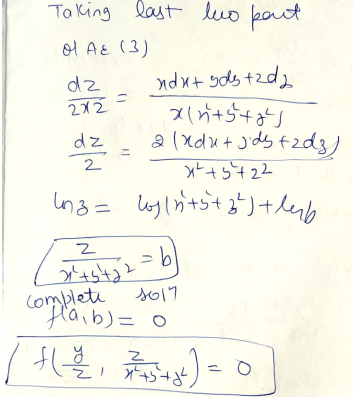 Taking last two part
of AE (3)
dz/2xz = xdx + ydy + zdz / x(x²+y²+z²)
dz/z = 2(xdx + ydy + zdz) / x²+y²+z²
ln z = log(x²+y²+z²) + ln b
z/x²+y²+z² = b
complete sol?
f(a,b) = 0
f(y/z, z/x²+y²+z²) = 0